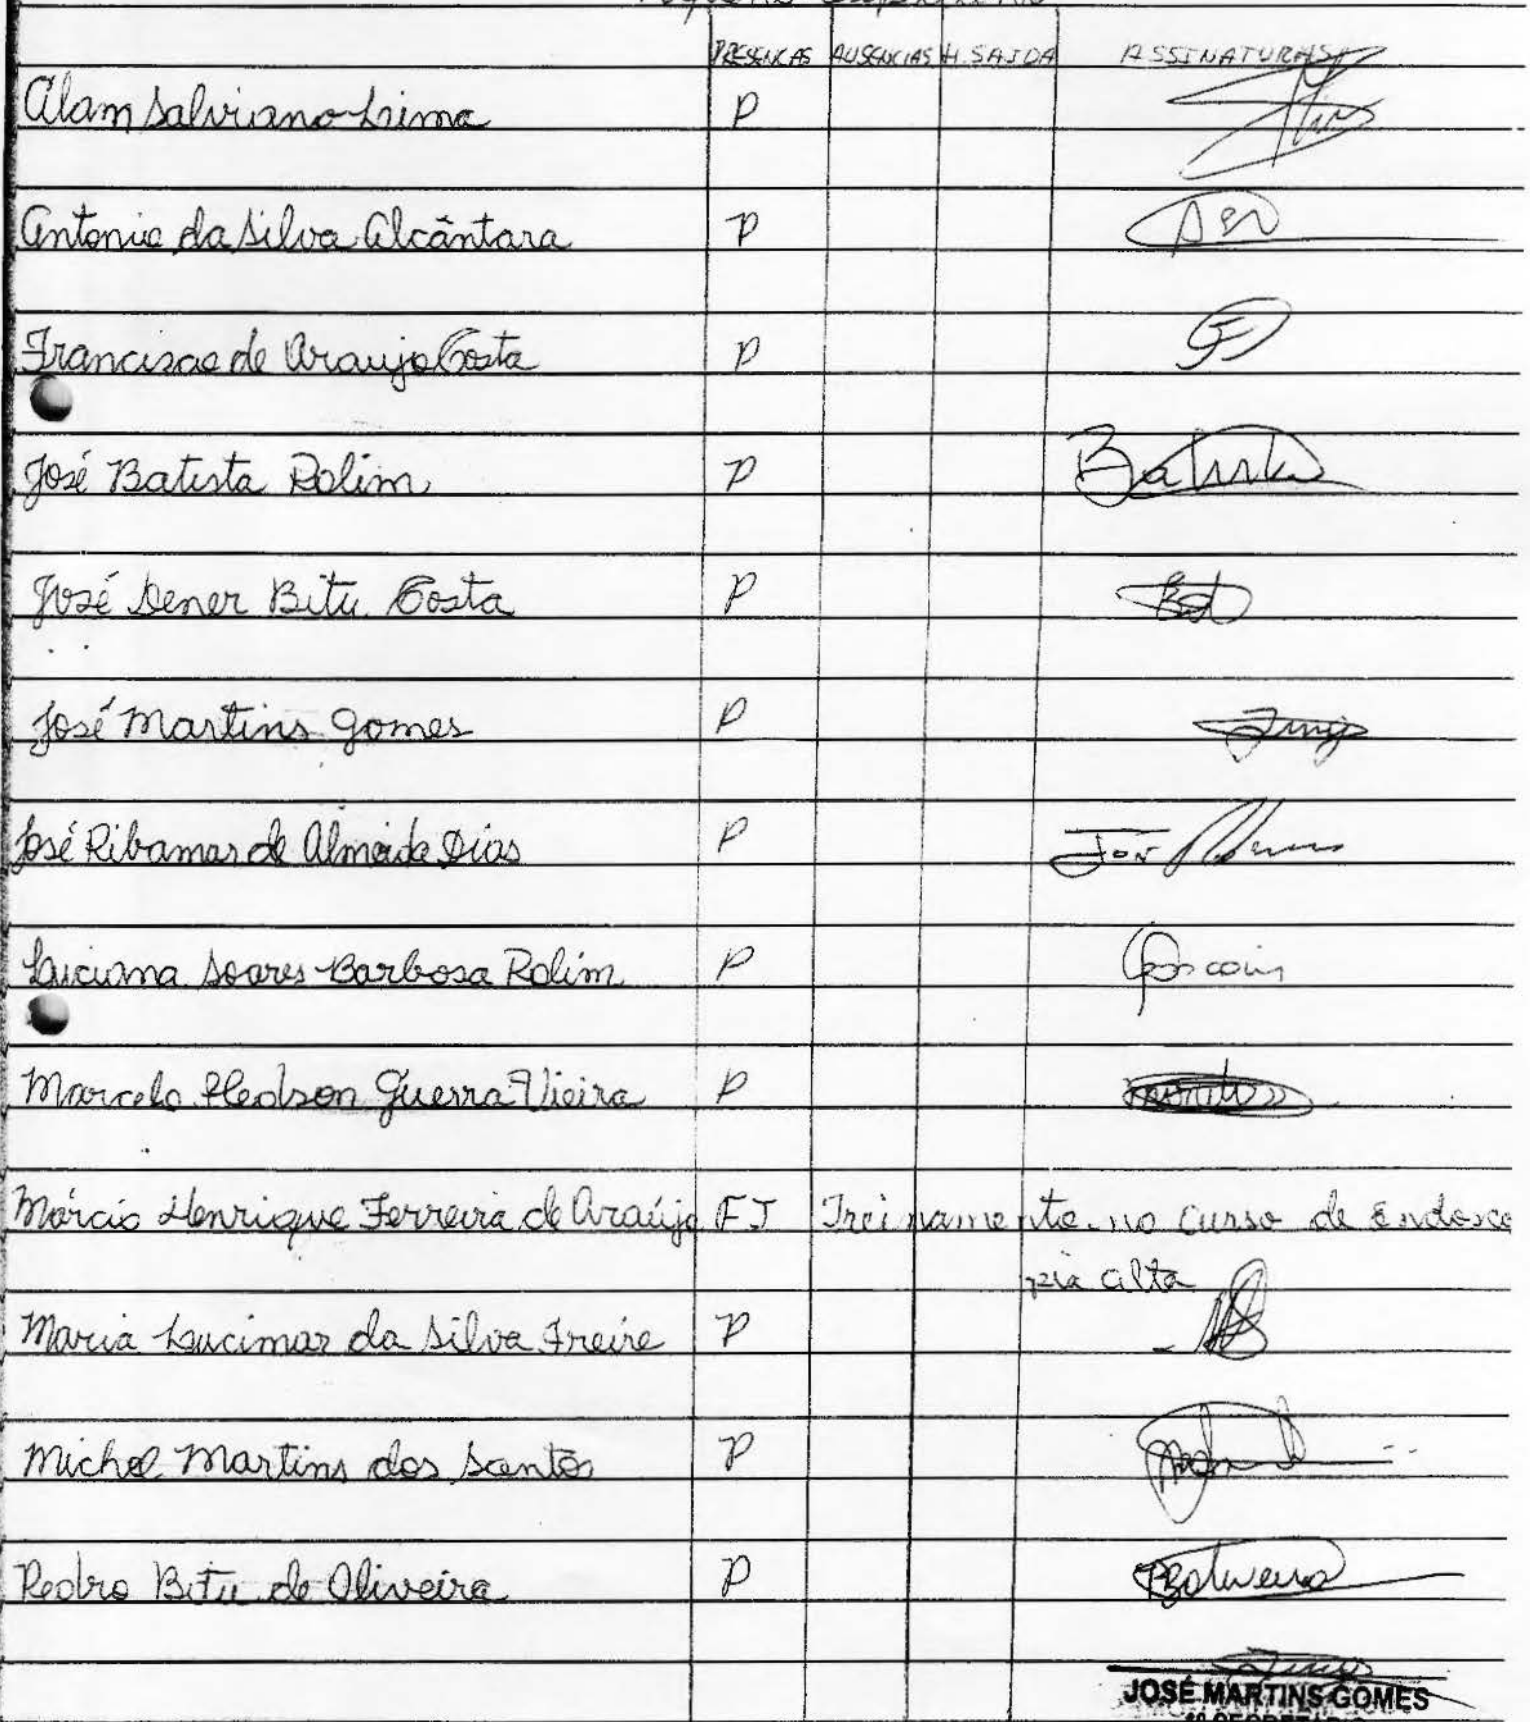 Pequeno Expediente
PRESENCAS AUSENCIAS H. SAIDA ASSINATURAS
Alam Salviano Lima P
Antonio da Silva Alcântara P
Francisco de Araujo Costa P
José Batista Rolim P Batista
José Dener Bitu Costa P
José Martins Gomes P
José Ribamar de Almeida Dias P
Luciana Soares Barbosa Rolim P
Marcelo Hedson Guerra Vieira P
Márcio Henrique Ferreira de Araújo FJ Treinamento no curso de Endosco
pia alta
Maria Lucimar da Silva Freire P
Michel Martins dos Santos P
Pedro Bitu de Oliveira P
JOSÉ MARTINS GOMES